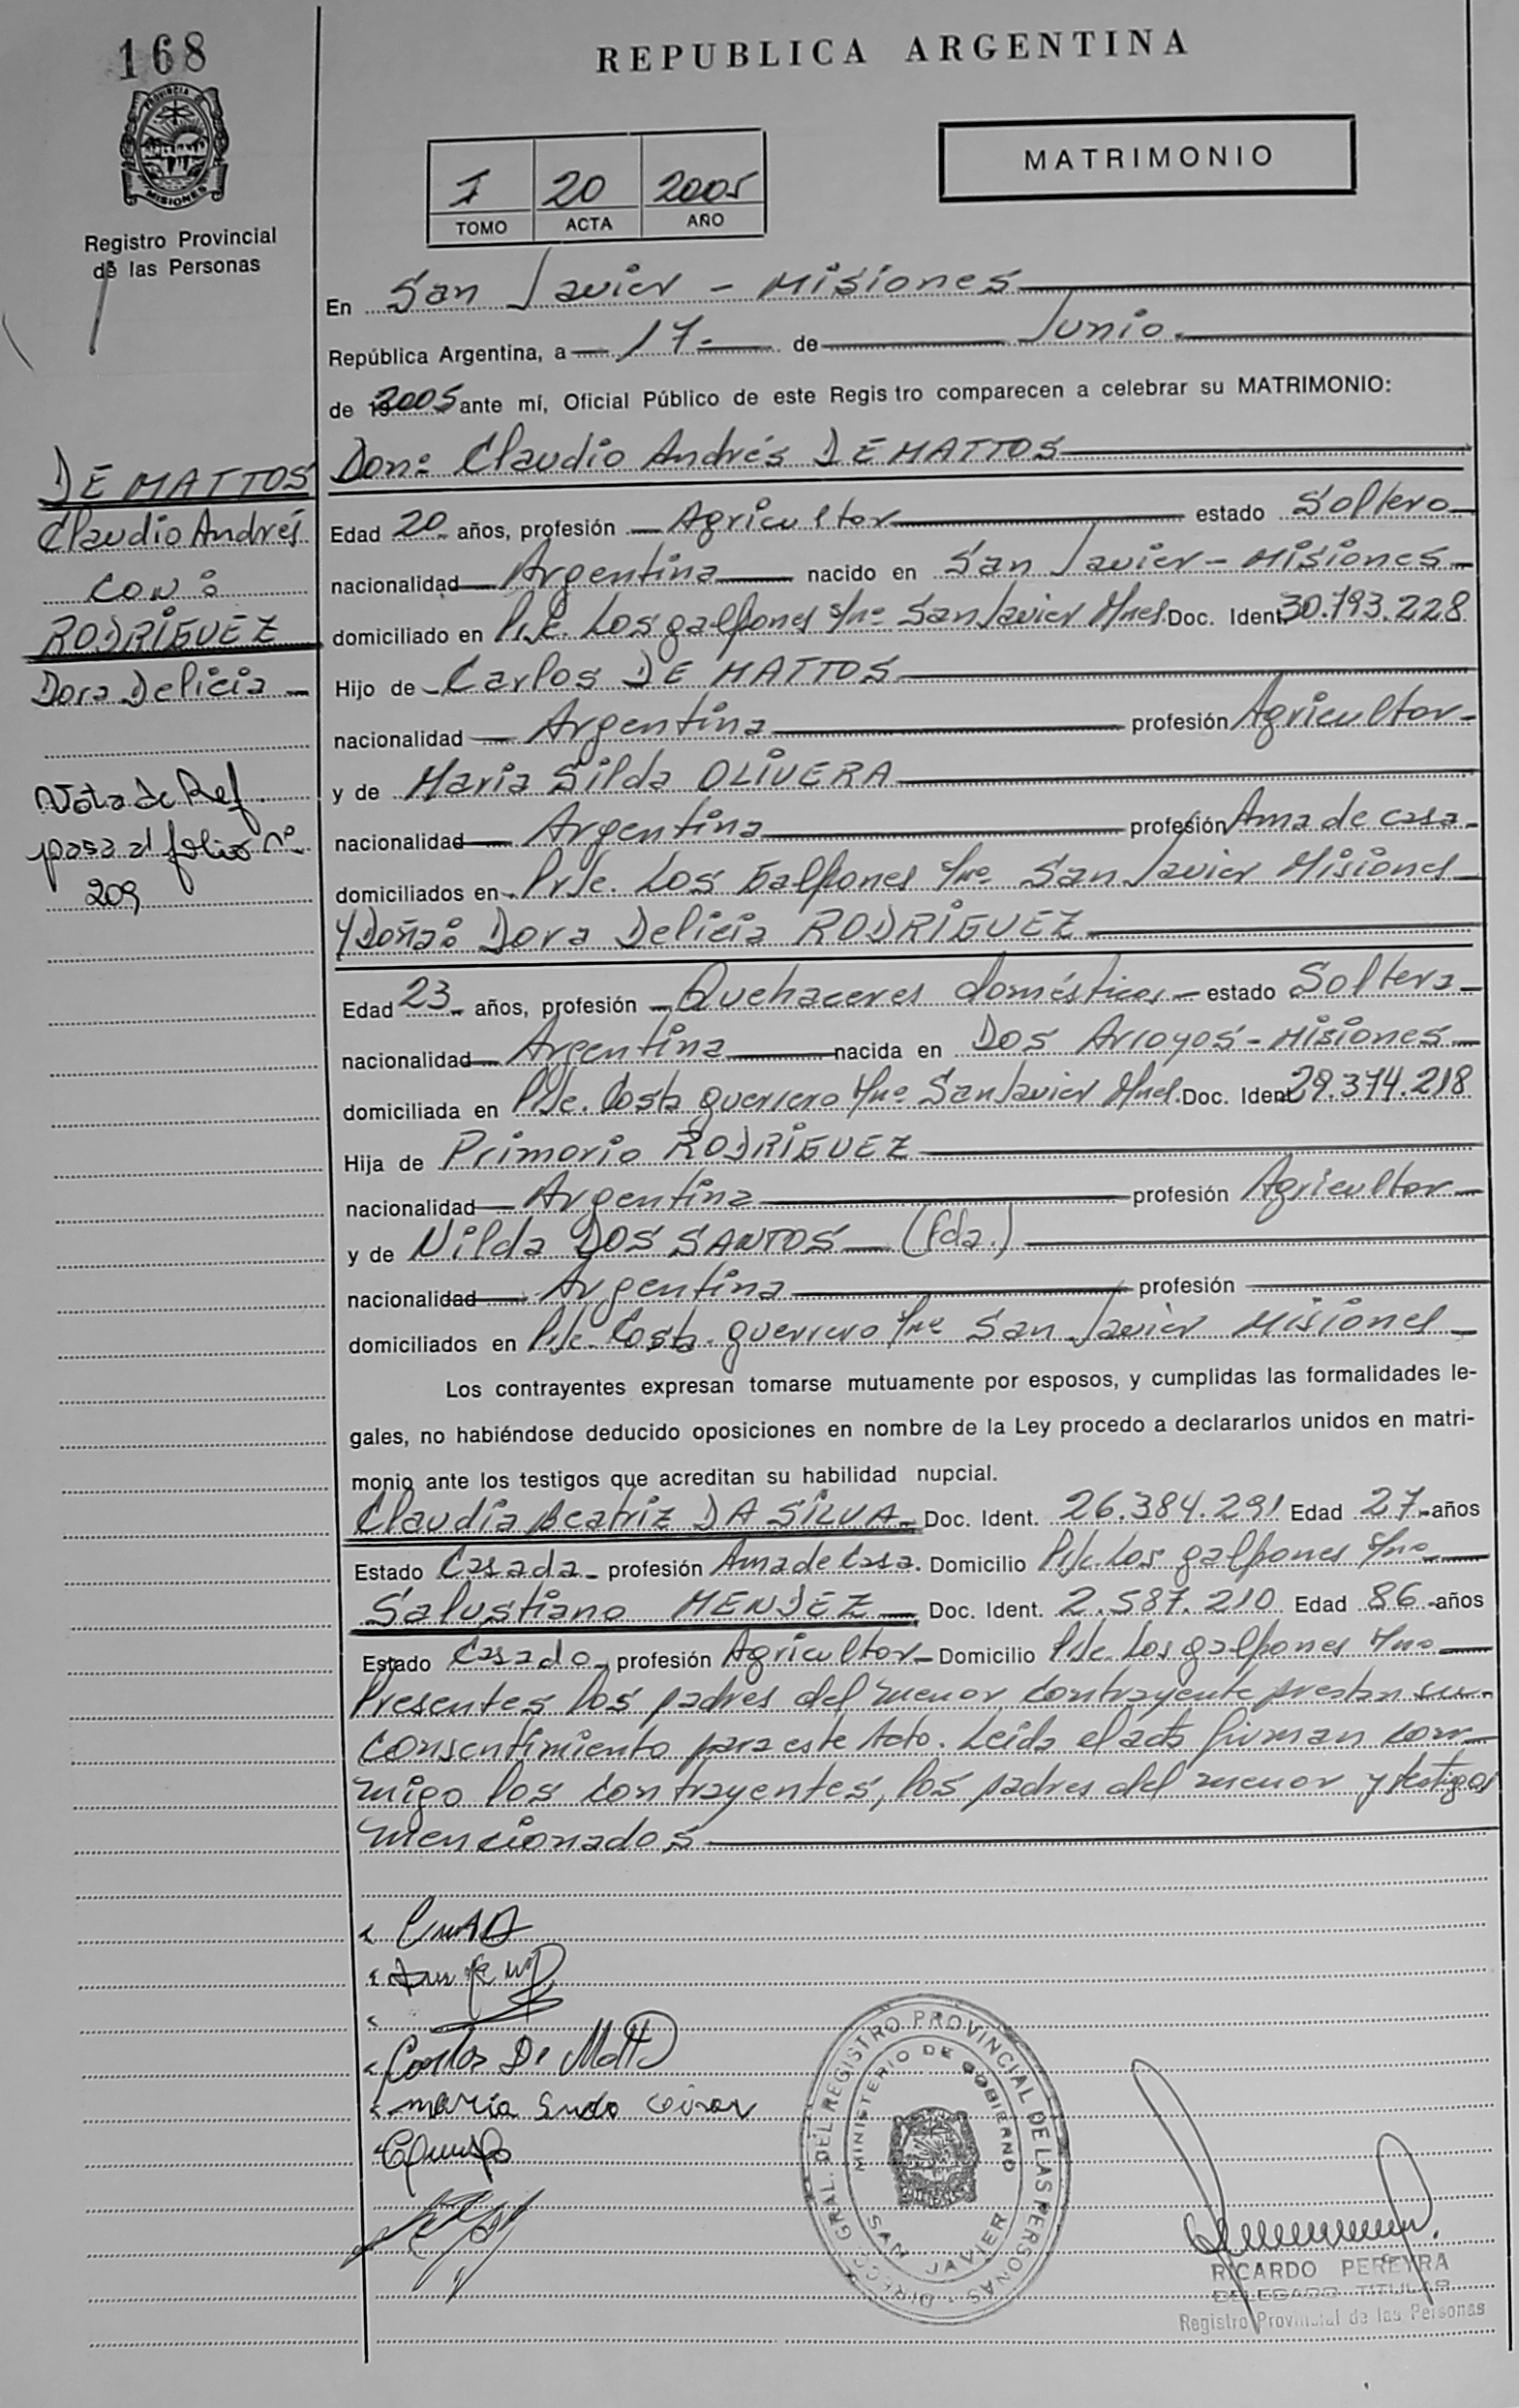 168
REPUBLICA ARGENTINA
PROVINCIA DE
MISIONES
Registro Provincial
de las Personas
I 20 2005
TOMO ACTA AÑO
MATRIMONIO
En San Javier - Misiones
República Argentina, a 17- de Junio.
de 2005 ante mí, Oficial Público de este Registro comparecen a celebrar su MATRIMONIO:
DE MATTOS
Claudio Andrés
CON:
RODRIGUEZ
Dora Delicia
Nota de Ref.
pasa al folio nº
209
Don: Claudio Andrés DE MATTOS
Edad 20 años, profesión Agricultor estado Soltero
nacionalidad Argentina nacido en San Javier - Misiones
domiciliado en Pje. Los galpones s/nº San Javier Mnes. Doc. Ident 30.793.228
Hijo de Carlos DE MATTOS
nacionalidad Argentina profesión Agricultor
y de Maria Silda OLIVERA
nacionalidad Argentina profesión Ama de casa
domiciliados en Prje. Los Galpones s/nº San Javier Misiones
Y Doña: Dora Delicia RODRIGUEZ
Edad 23 años, profesión Quehaceres domésticos estado Soltera
nacionalidad Argentina nacida en Dos Arroyos - Misiones
domiciliada en Pje. Costa guerrero s/nº San Javier Mnes. Doc. Ident 29.374.218
Hija de Primorio RODRIGUEZ
nacionalidad Argentina profesión Agricultor
y de Nilda DOS SANTOS (fda.)
nacionalidad Argentina profesión
domiciliados en Pje. Costa guerrero s/nº San Javier Misiones
Los contrayentes expresan tomarse mutuamente por esposos, y cumplidas las formalidades le-
gales, no habiéndose deducido oposiciones en nombre de la Ley procedo a declararlos unidos en matri-
monio ante los testigos que acreditan su habilidad nupcial.
Claudia Beatriz DA SILVA Doc. Ident. 26.384.291 Edad 27 años
Estado Casada profesión Ama de Casa. Domicilio Pje. Los galpones s/nº
Salustiano MENDEZ Doc. Ident. 2.587.210 Edad 86 años
Estado Casado profesión Agricultor Domicilio Pje. Los galpones s/nº
Presentes los padres del menor contrayente prestan su
consentimiento para este Acto. Leída el acta firman con
migo los contrayentes, los padres del menor y testigos
mencionados
Carlos De Matto
maria
DIRECC. GRAL. DEL REGISTRO PROVINCIAL DE LAS PERSONAS
MINISTERIO DE GOBIERNO
SAN JAVIER
RICARDO PEREYRA
DELEGADO TITULAR
Registro Provincial de las Personas